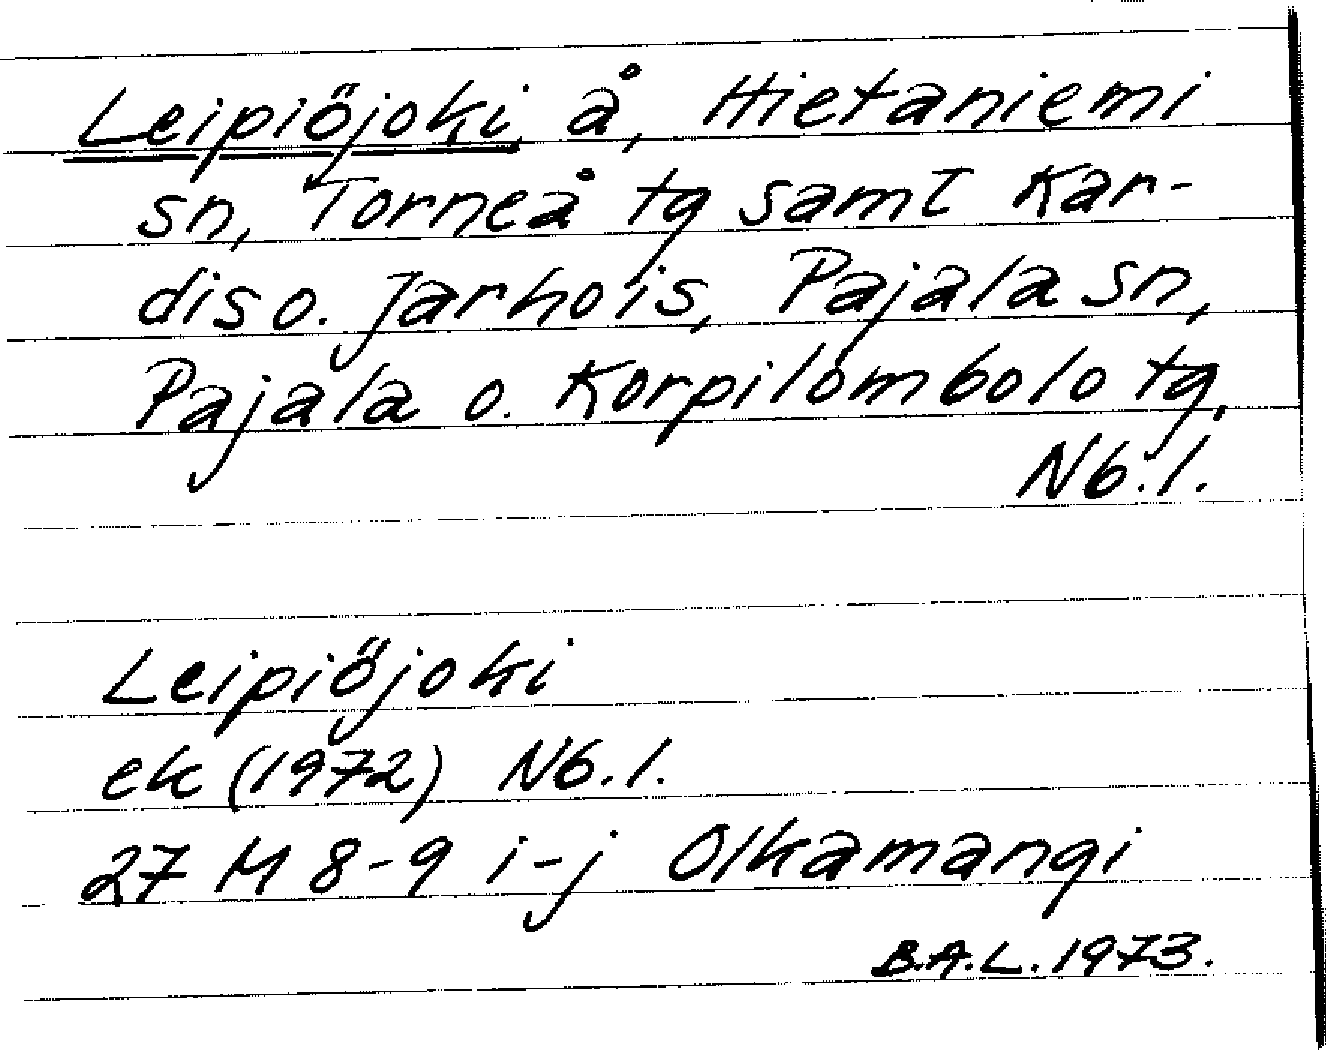 Leipiöjoki, å, Hietaniemi
sn, Torneå tg samt Kar-
dis o. Jarhois, Pajala sn,
Pajala o. Korpilombolo tg,
Nb. l.
Leipiöjoki
ek (1972) Nb. l.
27 M 8-9 i-j Olkamangi
B.A.L. 1973.